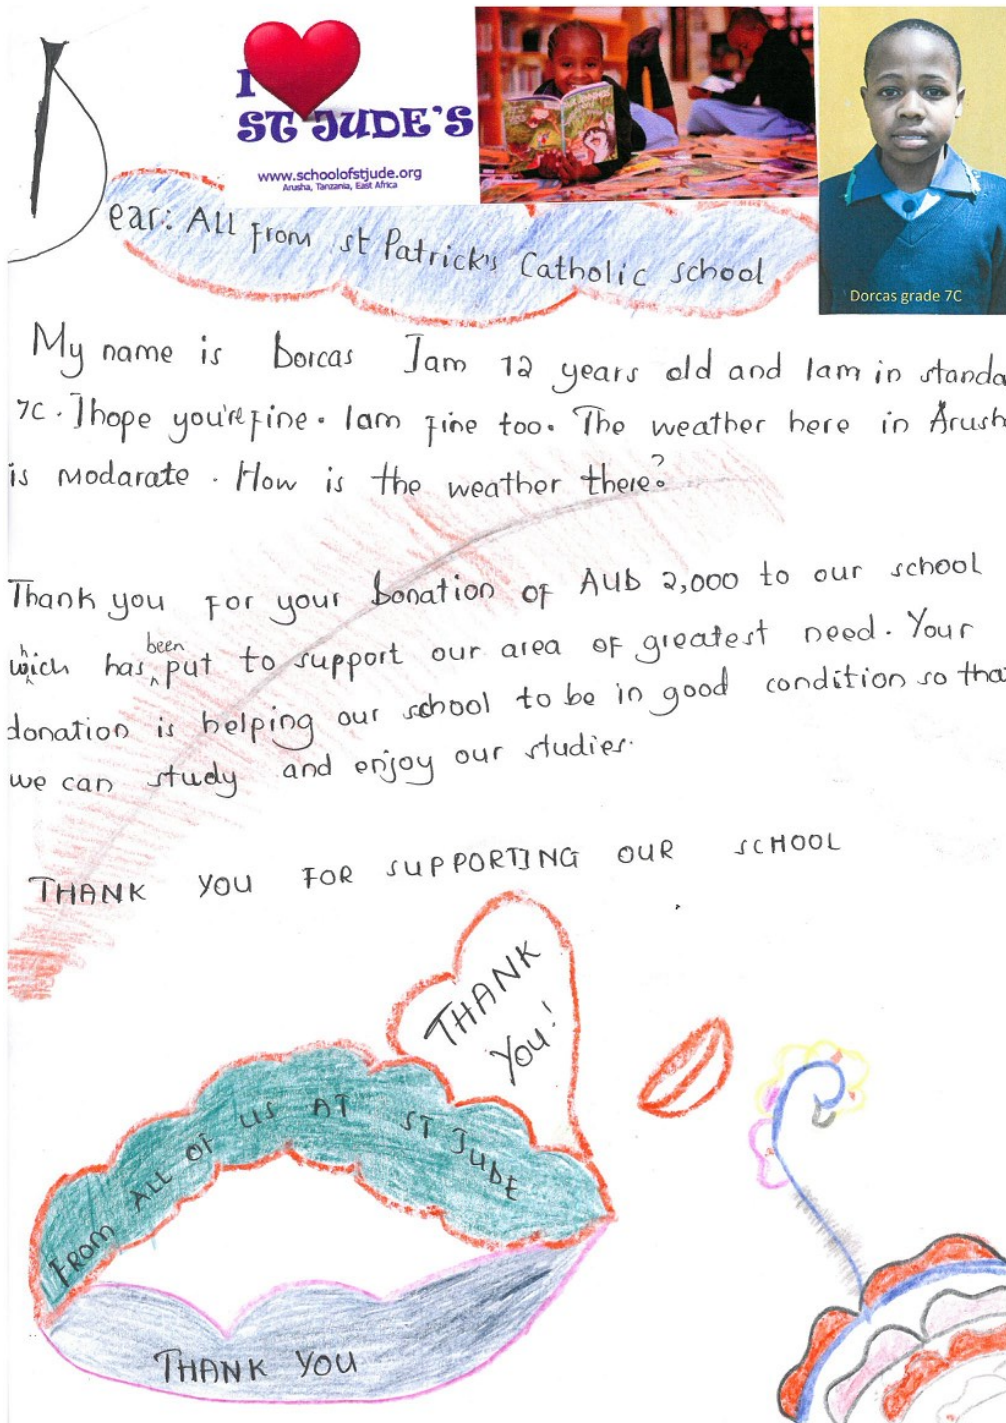 I
ST JUDE'S
www.schoolofstjude.org
Arusha, Tanzania, East Africa
Dorcas grade 7C
Dear: All from st Patrick's Catholic school
My name is Dorcas Iam 12 years old and Iam in standa
7C. Ihope you're fine. Iam fine too. The weather here in Arush
is modarate. How is the weather there?
Thank you For your Donation of AUD 2,000 to our school
which has been put to support our area of greatest need. Your
donation is helping our school to be in good condition so tha
we can study and enjoy our studies.
THANK YOU FOR SUPPORTING OUR SCHOOL
THANK
YOU!
FROM ALL OF US AT ST JUDE
THANK YOU